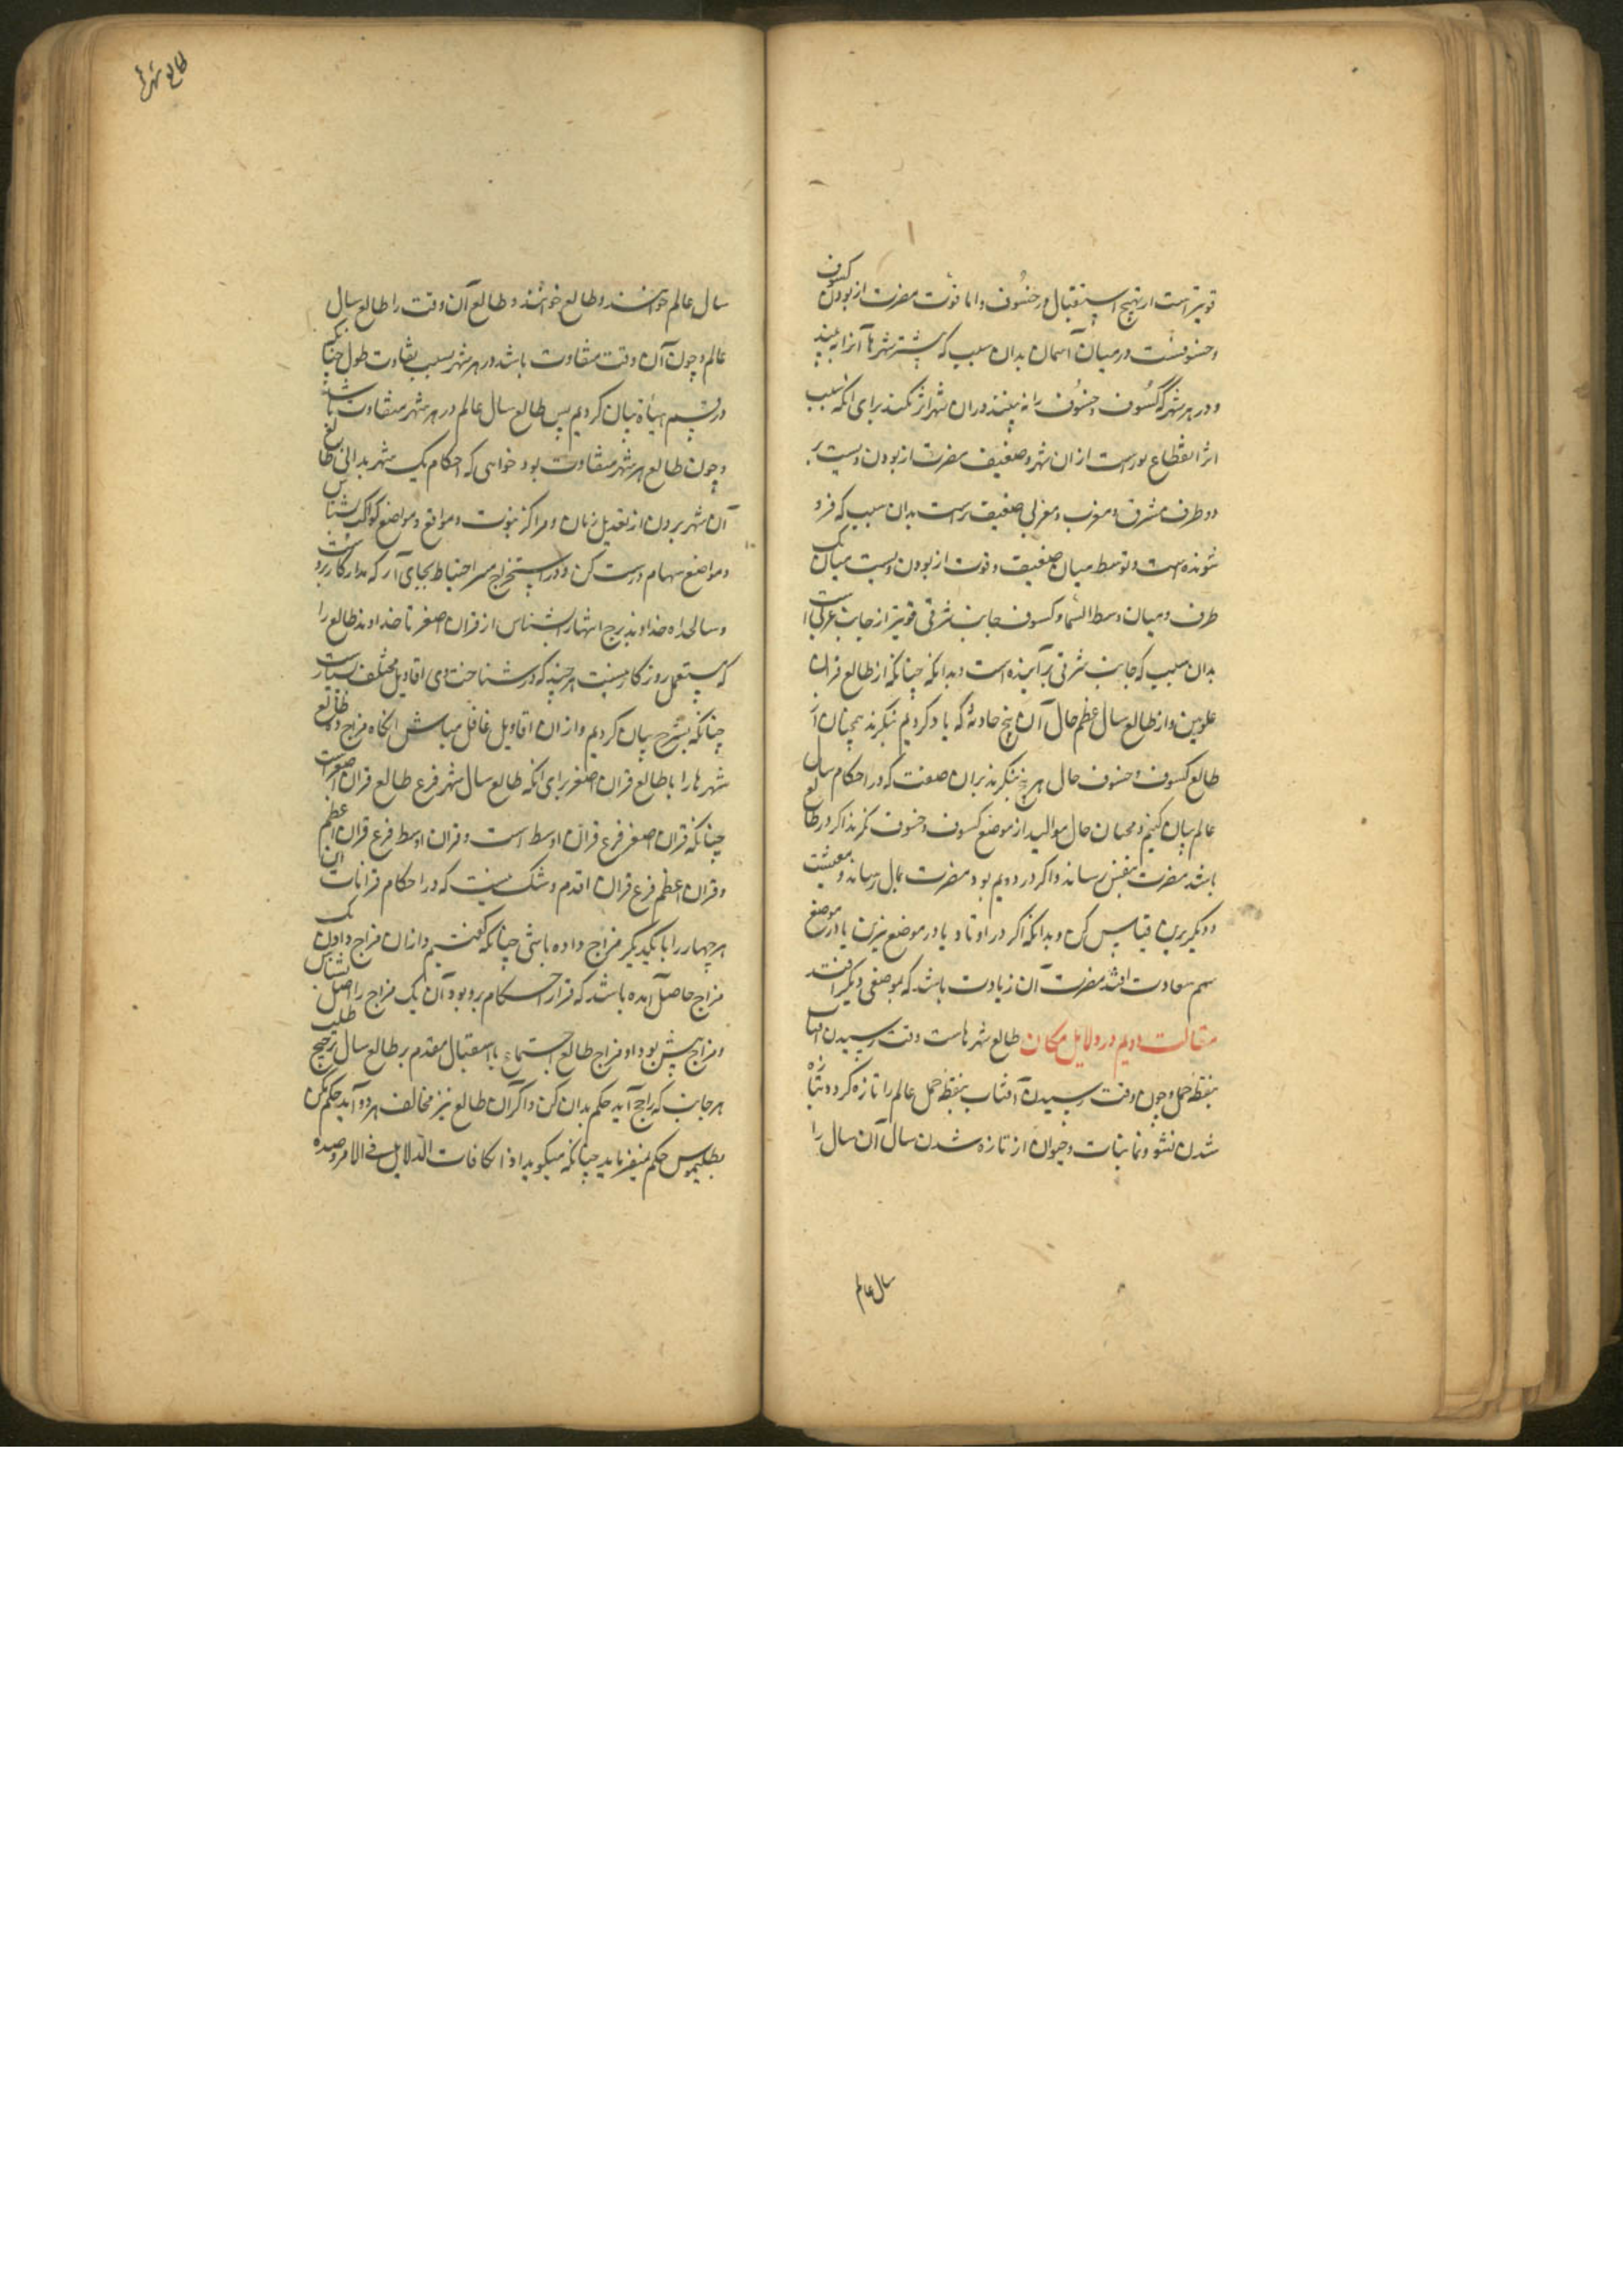 قویتر است از تهیج استقبال در خسوف و اما قوت مضرت از بودن کسوف
و خسوفست در میان آسمان بدان سبب که بیشتر شهرها آنرا به بیند
و در هر شهر که کسوف و خسوف را نه بینند در ان شهر اثر نکند برای انکه سبب
اثر انقطاع نورست از ان شهر و ضعیف مضرت از بودن ویست بر
دو طرف مشرق و مغرب و مغربی ضعیف ترست بدان سبب که فرو
شونده است و توسط میان ضعیف و قوت از بودن ویست میان یک
طرف و میان وسط السما و کسوف جانب شرقی قویتر از جانب غربی است
بدان سبب که جانب شرقی برآینده است و بدانکه چنانکه از طالع قران
علویین و از طالع سال عظم حال آن پنج حادثه که یاد کردیم بنکرند همچنان از
طالع کسوف و خسوف حال هر پنج بنکرند بران صفت که در احکام سال
عالم بیان کنیم و همچنان حال موالید از موضع کسوف و خسوف نکرند اکر در طالع
باشد مضرت بنفس رساند و اکر در دویم بود مضرت بمال رساند و معیشت
و دیکر برین قیاس کن و بدانکه اکر در اوتاد یا در موضع نیرین یا در موضع
سهم سعادت افتد مضرت آن زیادت باشد که بموضعی دیکر افتد
مقالت دویم در دلایل مکان طالع شهرهاست وقت رسیدن افتاب
بنقطه حمل و چون وقت رسیدن آفتاب بنقطه حمل عالم را تازه کردد بتازه
شدن نشو و نما نبات و حیوان از تازه شدن سال آن سال را
سال عالم
طالع شهرها
سال عالم خوانند و طالع خوانند و طالع آن وقت را طالع سال
عالم و چون آن وقت متفاوت باشد در هر شهر بسبب تفاوت طول چنانکه
در قسم هیأة بیان کردیم پس طالع سال عالم در هر شهر متفاوت باشد
و چون طالع هر شهر متفاوت بود خواهی که احکام یک شهر بدانی طالع
آن شهر بیرون از تعدیل زمان و مراکز بیوت و مواقع و مواضع کواکب شناس
و مواضع سهام درست کن و در استخراج مسر احتیاط بجای آر که مدار کار بروست
و سالخداه خداوند برج انتها را بشناس از قران اصغر تا خداوند طالع را
که مستعمل روزکار نیست هر چند که در شناختن وی اقاویل مختلف بسیارست
چنانکه بشرح بیان کردیم و از ان اقاویل غافل مباش انکاه مزاج ده طالع
شهرها را با طالع قران اصغر برای انکه طالع سال شهر فرع طالع قران اصغرست
چنانکه قران اصغر فرع قران اوسط است و قران اوسط فرع قران اعظم
و قران اعظم فرع قران اقدم و شک نیست که در احکام قرانات این
هر چهار را با یکدیکر مزاج داده باشی چنانکه کفتیم و از ان مزاج دادن یک
مزاج حاصل آمده باشد که قرار احکام برو بود آن یک مزاج را اصل شناس
و مزاج پیش بود او مزاج طالع اجتماع یا استقبال مقدم بر طالع سال ترجیح طلب
هر جانب که راجح آید حکم بدان کن و اکر آن طالع نیز مخالف هر دو آید حکم مکن
بطلیموس حکم میفرماید چنانکه میکوید اذا تکافات الدلایل فی الامر و ضده